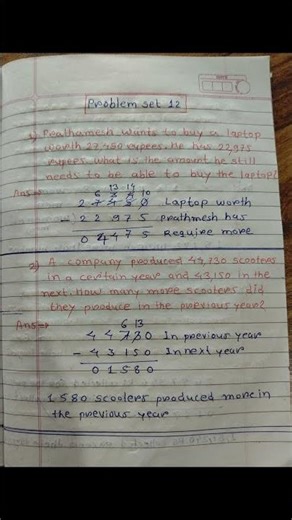 Problem set 12
1) Prathamesh wants to buy a laptop
worth 27,450 rupees. He has 22,975
rupees. What is the amount he still
needs to be able to buy the laptop?
Ans⇒ 6 13 14 10
2 7 4 5 0 Laptop worth
- 2 2 9 7 5 Prathmesh has
0 4 4 7 5 Require more
2) A company produced 44,730 scooters
in a certain year and 43,150 in the
next. How many more scooters did
they produce in the previous year?
Ans⇒ 6 13
4 4 7 3 0 In previous year
- 4 3 1 5 0 In next year
0 1 5 8 0
1580 scooters produced more in
the previous year